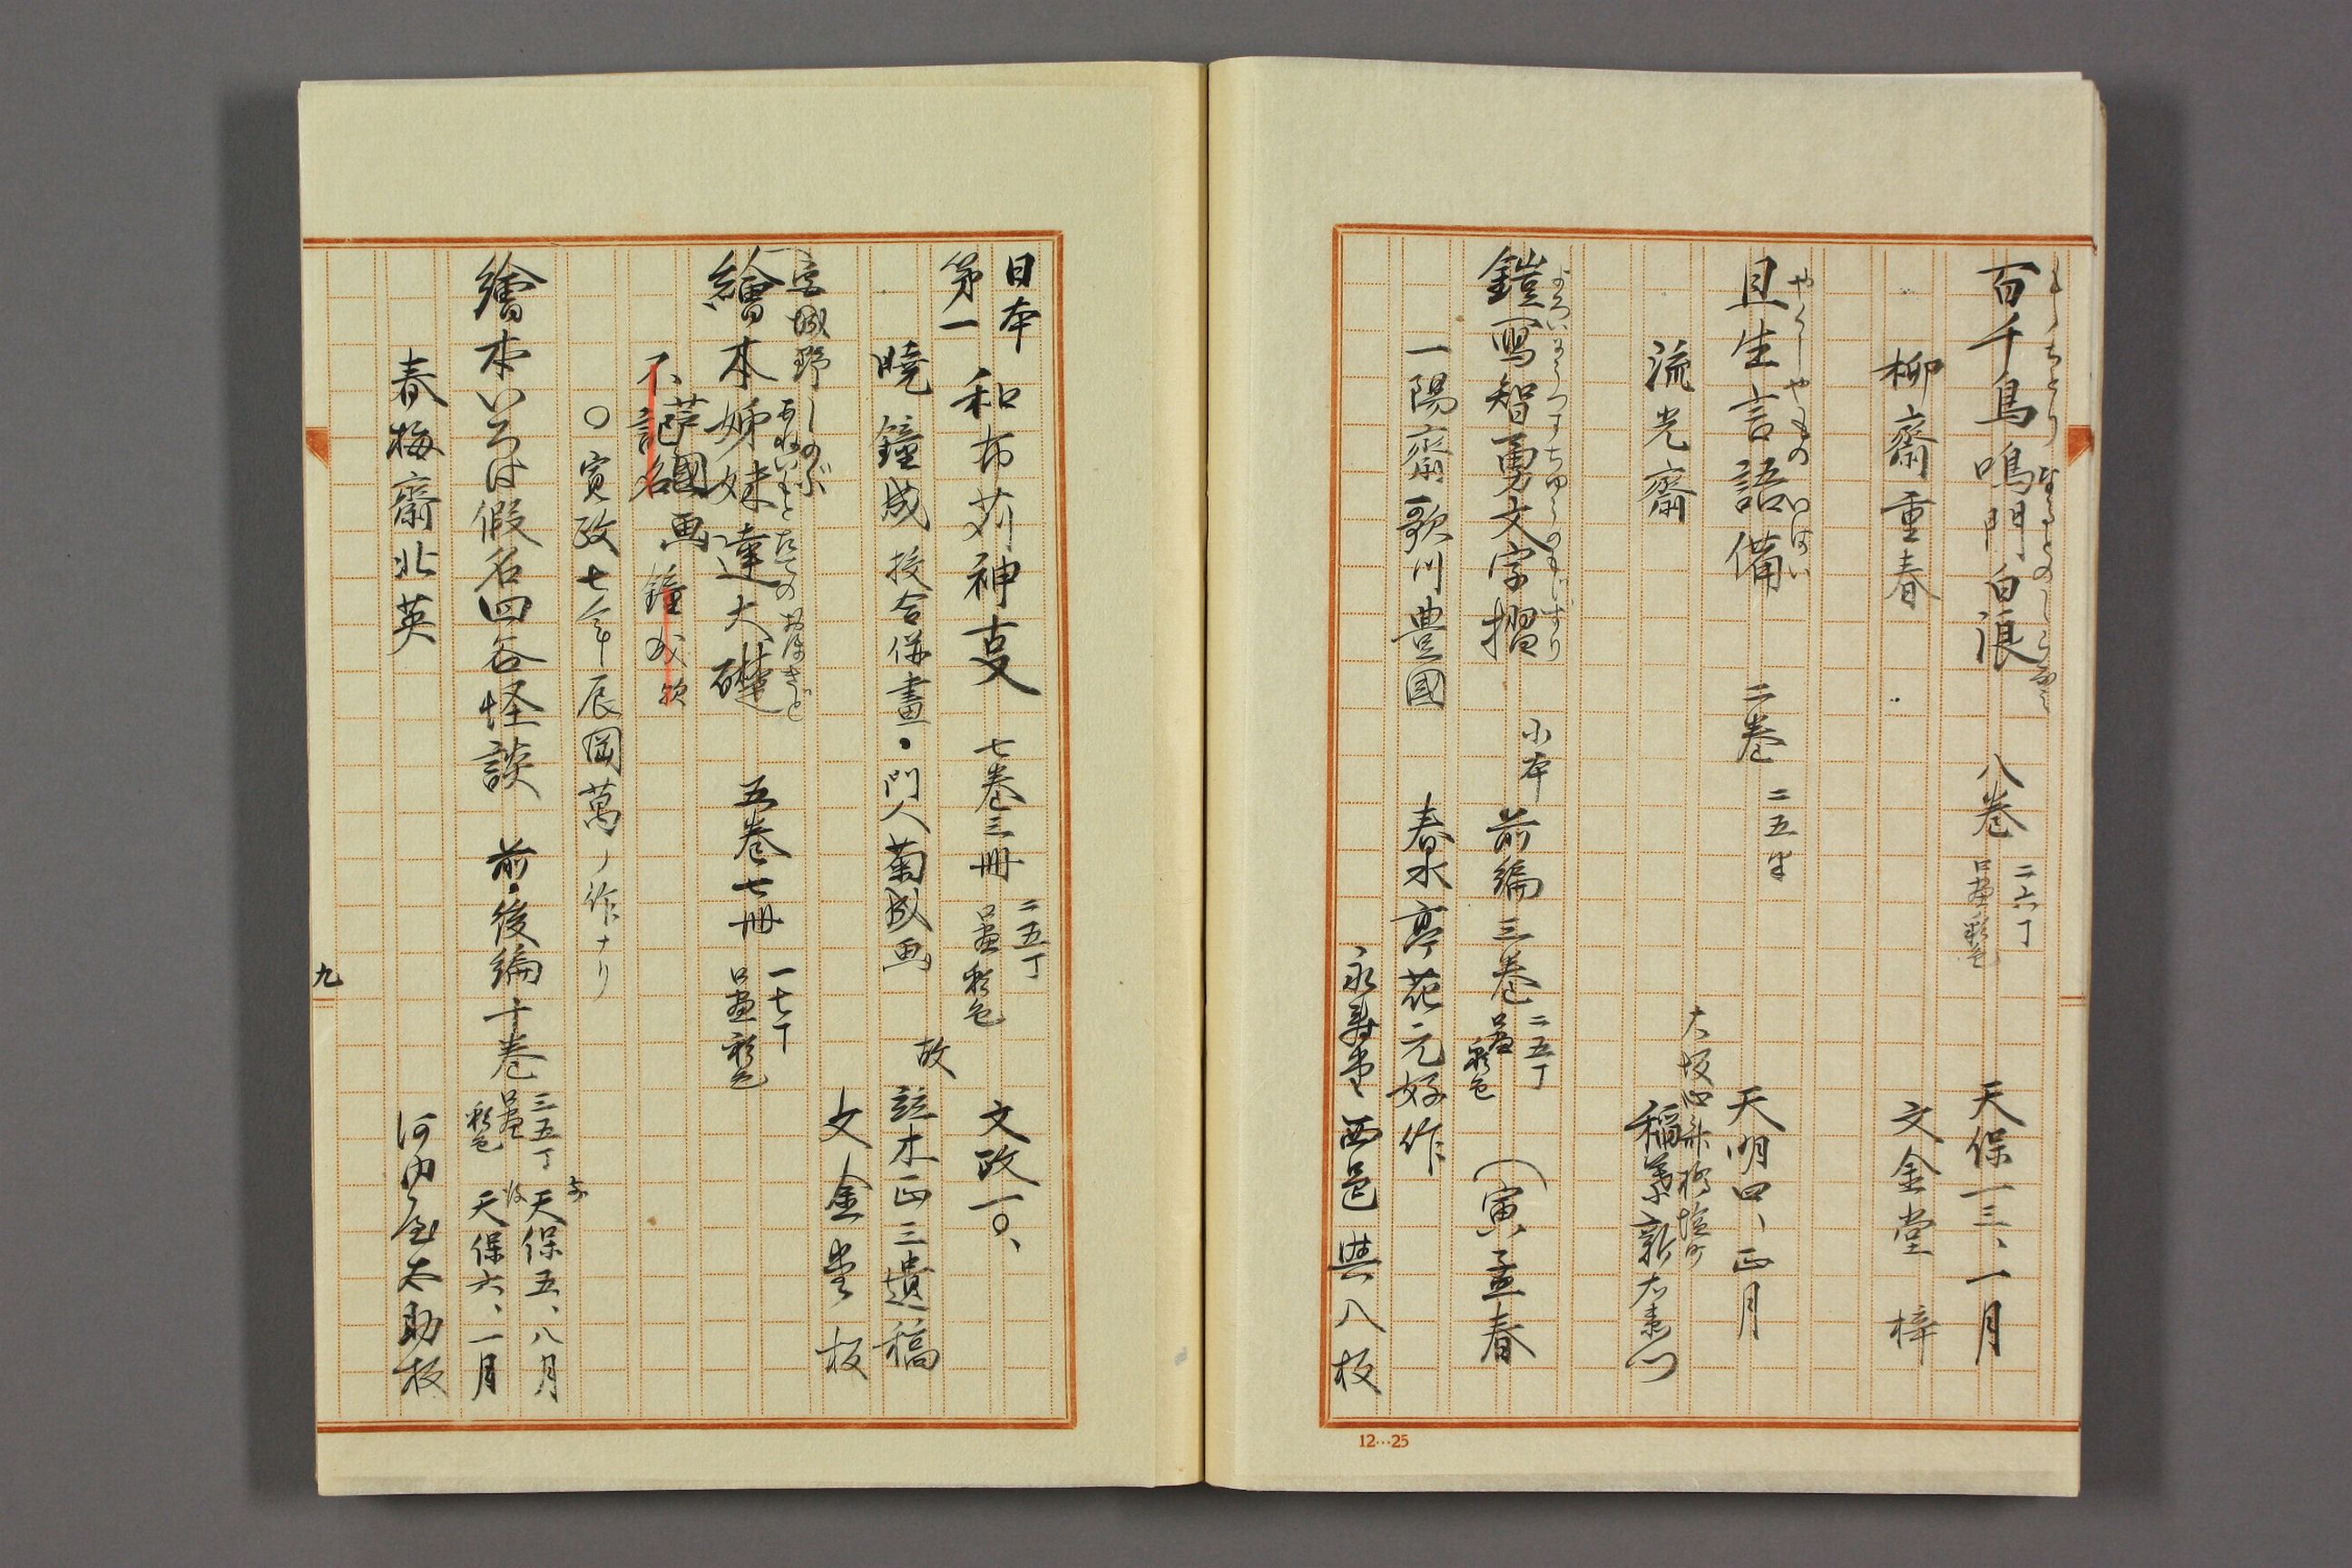 百千鳥鳴門白浪 八巻 二六丁 天保一三、一月
柳齋重春 文金堂 梓
且生言語備 二巻 二五半 天明四、正月
やくしやもの いはい
大坂心斎橋塩町
流光齋 稲葉新右衛門
鎧写智勇文字摺 小本 前編三巻 二五丁 彩色 (寅孟春
一陽齋歌川豊國 春水亭花元好作
永寿堂 西邑與八板
12…25
日本第一 和布苅神事 七巻三冊 二五丁 彩色 文政一〇、
暁鐘成 校合併畫・門人菊成画 故 並木正三遺稿
文金堂 板
宮城野 しのぶ
繪本姉妹達大礎 五巻七冊 一七丁 彩色
あねいもと だての おほきど
芦國画
不記名 鐘成欤
〇寛政七年辰岡萬ノ作ナリ
繪本いろは假名四谷怪談 前・後編十巻 三五丁 彩色 前天保五、八月 後天保六、一月
春梅齋北英 河内屋太助板
九